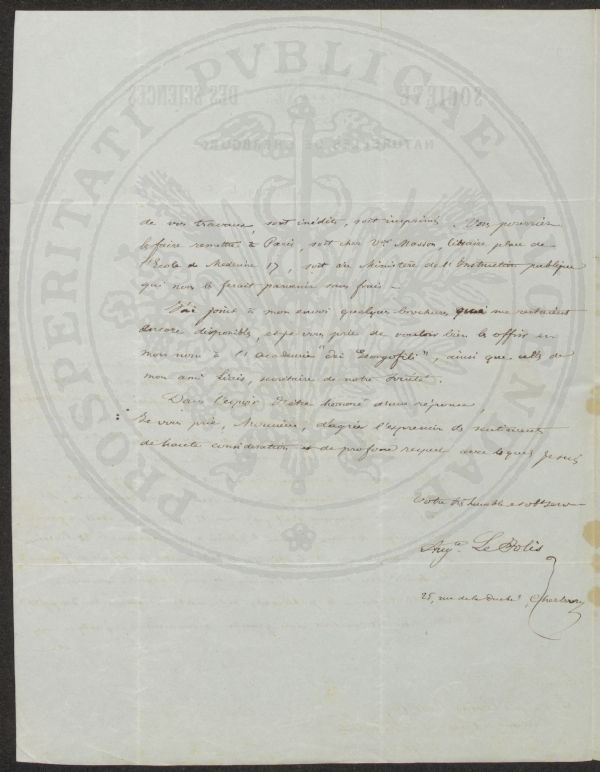 de vos travaux, soit inédits, soit imprimés. Vous pourriez
le faire remettre à Paris, soit chez Vor Masson, libraire, place de
l'Ecole de Medecine 17, soit au Ministère de l'Instruction publique
qui nous le ferait parvenir sans frais.
J'ai joint à mon envoi quelques brochures qui me restaient
encore disponibles, et je vous prie de vouloir bien les offrir en
mon nom à l'academie "dei Georgofili", ainsi que celles de
mon ami Liais, secrétaire de notre Société.
Dans l'espoir d'être honoré d'une réponse,
Je vous prie, Monsieur, d'agréer l'expression des sentiments
de haute considération et de profond respect avec lesquels je suis
Votre très humble et obt serv
Augte. Le Jolis
25, rue de la Duché, Cherbourg
PROSPERITATI PVBLICAE
SOCIÉTÉ
DES SCIENCES
NATURELLES DE CHERBOURG